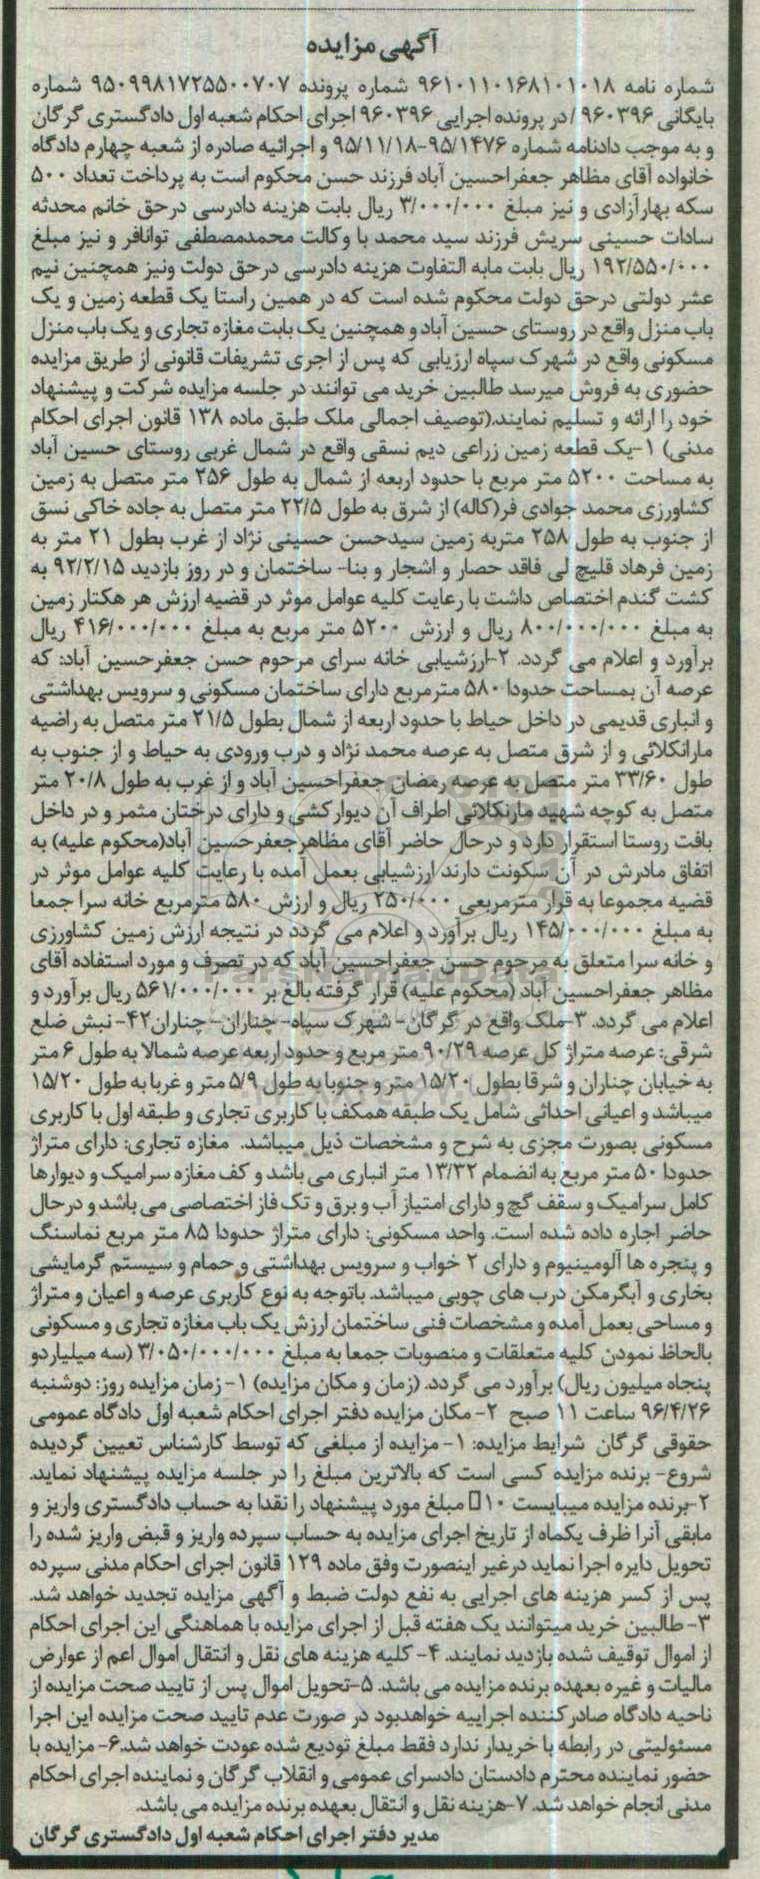 آگهی مزایده
شماره نامه ۹۶۱۰۱۱۰۱۶۸۱۰۱۰۱۸ شماره پرونده ۹۵۰۹۹۸۱۷۲۵۵۰۰۷۰۷ شماره
بایگانی ۹۶۰۳۹۶ / در پرونده اجرایی ۹۶۰۳۹۶ اجرای احکام شعبه اول دادگستری گرگان
و به موجب دادنامه شماره ۹۵/۱۴۷۶-۹۵/۱۱/۱۸ و اجرائیه صادره از شعبه چهارم دادگاه
خانواده آقای مظاهر جعفراحسین آباد فرزند حسن محکوم است به پرداخت تعداد ۵۰۰
سکه بهارآزادی و نیز مبلغ ۳/۰۰۰/۰۰۰ ریال بابت هزینه دادرسی درحق خانم محدثه
سادات حسینی سریش فرزند سید محمد با وکالت محمدمصطفی توانافر و نیز مبلغ
۱۹۲/۵۵۰/۰۰۰ ریال بابت مابه التفاوت هزینه دادرسی درحق دولت ونیز همچنین نیم
عشر دولتی درحق دولت محکوم شده است که در همین راستا یک قطعه زمین و یک
باب منزل واقع در روستای حسین آباد و همچنین یک بابت مغازه تجاری و یک باب منزل
مسکونی واقع در شهرک سپاه ارزیابی که پس از اجری تشریفات قانونی از طریق مزایده
حضوری به فروش میرسد طالبین خرید می توانند در جلسه مزایده شرکت و پیشنهاد
خود را ارائه و تسلیم نمایند.(توصیف اجمالی ملک طبق ماده ۱۳۸ قانون اجرای احکام
مدنی) ۱-یک قطعه زمین زراعی دیم نسقی واقع در شمال غربی روستای حسین آباد
به مساحت ۵۲۰۰ متر مربع با حدود اربعه از شمال به طول ۲۵۶ متر متصل به زمین
کشاورزی محمد جوادی فر(کاله) از شرق به طول ۲۲/۵ متر متصل به جاده خاکی نسق
از جنوب به طول ۲۵۸ متربه زمین سیدحسن حسینی نژاد از غرب بطول ۲۱ متر به
زمین فرهاد قلیچ لی فاقد حصار و اشجار و بنا- ساختمان و در روز بازدید ۹۲/۲/۱۵ به
کشت گندم اختصاص داشت با رعایت کلیه عوامل موثر در قضیه ارزش هر هکتار زمین
به مبلغ ۸۰۰/۰۰۰/۰۰۰ ریال و ارزش ۵۲۰۰ متر مربع به مبلغ ۴۱۶/۰۰۰/۰۰۰ ریال
برآورد و اعلام می گردد. ۲-ارزشیابی خانه سرای مرحوم حسن جعفرحسین آباد: که
عرصه آن بمساحت حدودا ۵۸۰ مترمربع دارای ساختمان مسکونی و سرویس بهداشتی
و انباری قدیمی در داخل حیاط با حدود اربعه از شمال بطول ۲۱/۵ متر متصل به راضیه
مارانکلائی و از شرق متصل به عرصه محمد نژاد و درب ورودی به حیاط و از جنوب به
طول ۳۳/۶۰ متر متصل به عرصه رمضان جعفراحسین آباد و از غرب به طول ۲۰/۸ متر
متصل به کوچه شهید مازنکلائی اطراف آن دیوارکشی و دارای درختان مثمر و در داخل
بافت روستا استقرار دارد و درحال حاضر آقای مظاهرجعفرحسین آباد(محکوم علیه) به
اتفاق مادرش در آن سکونت دارند ارزشیابی بعمل آمده با رعایت کلیه عوامل موثر در
قضیه مجموعا به قرار مترمربعی ۲۵۰/۰۰۰ ریال و ارزش ۵۸۰ مترمربع خانه سرا جمعا
به مبلغ ۱۴۵/۰۰۰/۰۰۰ ریال برآورد و اعلام می گردد در نتیجه ارزش زمین کشاورزی
و خانه سرا متعلق به مرحوم حسن جعفراحسین آباد که در تصرف و مورد استفاده آقای
مظاهر جعفراحسین آباد (محکوم علیه) قرار گرفته بالغ بر ۵۶۱/۰۰۰/۰۰۰ ریال برآورد و
اعلام می گردد. ۳-ملک واقع در گرگان- شهرک سپاه- چناران- چناران۴۲- نبش ضلع
شرقی: عرصه متراژ کل عرصه ۹۰/۲۹ متر مربع و حدود اربعه عرصه شمالا به طول ۶ متر
به خیابان چناران و شرقا بطول ۱۵/۲۰ متر و جنوبا به طول ۵/۹ متر و غربا به طول ۱۵/۲۰
میباشد و اعیانی احداثی شامل یک طبقه همکف با کاربری تجاری و طبقه اول با کاربری
مسکونی بصورت مجزی به شرح و مشخصات ذیل میباشد. مغازه تجاری: دارای متراژ
حدودا ۵۰ متر مربع به انضمام ۱۳/۳۲ متر انباری می باشد و کف مغازه سرامیک و دیوارها
کامل سرامیک و سقف گچ و دارای امتیاز آب و برق و تک فاز اختصاصی می باشد و درحال
حاضر اجاره داده شده است. واحد مسکونی: دارای متراژ حدودا ۸۵ متر مربع نماسنگ
و پنجره ها آلومینیوم و دارای ۲ خواب و سرویس بهداشتی و حمام و سیستم گرمایشی
بخاری و آبگرمکن درب های چوبی میباشد. باتوجه به نوع کاربری عرصه و اعیان و متراژ
و مساحی بعمل آمده و مشخصات فنی ساختمان ارزش یک باب مغازه تجاری و مسکونی
بالحاظ نمودن کلیه متعلقات و منصوبات جمعا به مبلغ ۳/۰۵۰/۰۰۰/۰۰۰ (سه میلیاردو
پنجاه میلیون ریال) برآورد می گردد. (زمان و مکان مزایده) ۱- زمان مزایده روز: دوشنبه
۹۶/۴/۲۶ ساعت ۱۱ صبح ۲- مکان مزایده دفتر اجرای احکام شعبه اول دادگاه عمومی
حقوقی گرگان شرایط مزایده: ۱- مزایده از مبلغی که توسط کارشناس تعیین گردیده
شروع- برنده مزایده کسی است که بالاترین مبلغ را در جلسه مزایده پیشنهاد نماید.
۲-برنده مزایده میبایست ۱۰ مبلغ مورد پیشنهاد را نقدا به حساب دادگستری واریز و
مابقی آنرا ظرف یکماه از تاریخ اجرای مزایده به حساب سپرده واریز و قبض واریز شده را
تحویل دایره اجرا نماید درغیر اینصورت وفق ماده ۱۲۹ قانون اجرای احکام مدنی سپرده
پس از کسر هزینه های اجرایی به نفع دولت ضبط و آگهی مزایده تجدید خواهد شد.
۳- طالبین خرید میتوانند یک هفته قبل از اجرای مزایده با هماهنگی این اجرای احکام
از اموال توقیف شده بازدید نمایند. ۴- کلیه هزینه های نقل و انتقال اموال اعم از عوارض
مالیات و غیره بعهده برنده مزایده می باشد. ۵-تحویل اموال پس از تایید صحت مزایده از
ناحیه دادگاه صادرکننده اجراییه خواهدبود در صورت عدم تایید صحت مزایده این اجرا
مسئولیتی در رابطه با خریدار ندارد فقط مبلغ تودیع شده عودت خواهد شد.۶- مزایده با
حضور نماینده محترم دادستان دادسرای عمومی و انقلاب گرگان و نماینده اجرای احکام
مدنی انجام خواهد شد. ۷-هزینه نقل و انتقال بعهده برنده مزایده می باشد.
مدیر دفتر اجرای احکام شعبه اول دادگستری گرگان